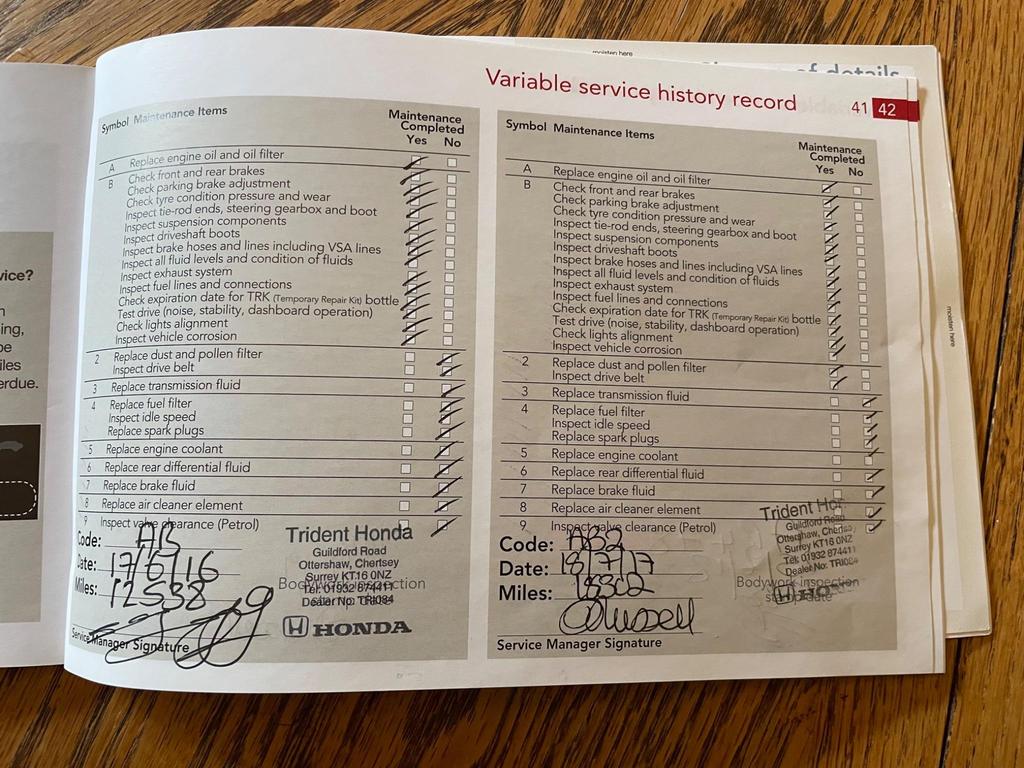 moisten here
Variable service history record 41 42
Symbol Maintenance Items
Maintenance
Completed
Yes No
A Replace engine oil and oil filter
B Check front and rear brakes
Check parking brake adjustment
Check tyre condition pressure and wear
Inspect tie-rod ends, steering gearbox and boot
Inspect suspension components
Inspect driveshaft boots
Inspect brake hoses and lines including VSA lines
Inspect all fluid levels and condition of fluids
Inspect exhaust system
Inspect fuel lines and connections
Check expiration date for TRK (Temporary Repair Kit) bottle
Test drive (noise, stability, dashboard operation)
Check lights alignment
Inspect vehicle corrosion
2 Replace dust and pollen filter
Inspect drive belt
3 Replace transmission fluid
4 Replace fuel filter
Inspect idle speed
Replace spark plugs
5 Replace engine coolant
6 Replace rear differential fluid
7 Replace brake fluid
8 Replace air cleaner element
9 Inspect valve clearance (Petrol)
Code: AB
Date: 17/6/16
Miles: 12538
Service Manager Signature
Trident Honda
Guildford Road
Ottershaw, Chertsey
Surrey KT16 0NZ
Tel: 01932 874411
Dealer No: TRI084
Bodywork inspection
HONDA
Symbol Maintenance Items
Maintenance
Completed
Yes No
A Replace engine oil and oil filter
B Check front and rear brakes
Check parking brake adjustment
Check tyre condition pressure and wear
Inspect tie-rod ends, steering gearbox and boot
Inspect suspension components
Inspect driveshaft boots
Inspect brake hoses and lines including VSA lines
Inspect all fluid levels and condition of fluids
Inspect exhaust system
Inspect fuel lines and connections
Check expiration date for TRK (Temporary Repair Kit) bottle
Test drive (noise, stability, dashboard operation)
Check lights alignment
Inspect vehicle corrosion
2 Replace dust and pollen filter
Inspect drive belt
3 Replace transmission fluid
4 Replace fuel filter
Inspect idle speed
Replace spark plugs
5 Replace engine coolant
6 Replace rear differential fluid
7 Replace brake fluid
8 Replace air cleaner element
9 Inspect valve clearance (Petrol)
Code: AB2
Date: 18/7/17
Miles: 18302
Service Manager Signature
Trident Hon
Guildford Road
Ottershaw, Chertsey
Surrey KT16 0NZ
Tel: 01932 874411
Dealer No: TRI084
Bodywork inspection
HON
moisten here
vice?
ing,
iles
erdue.